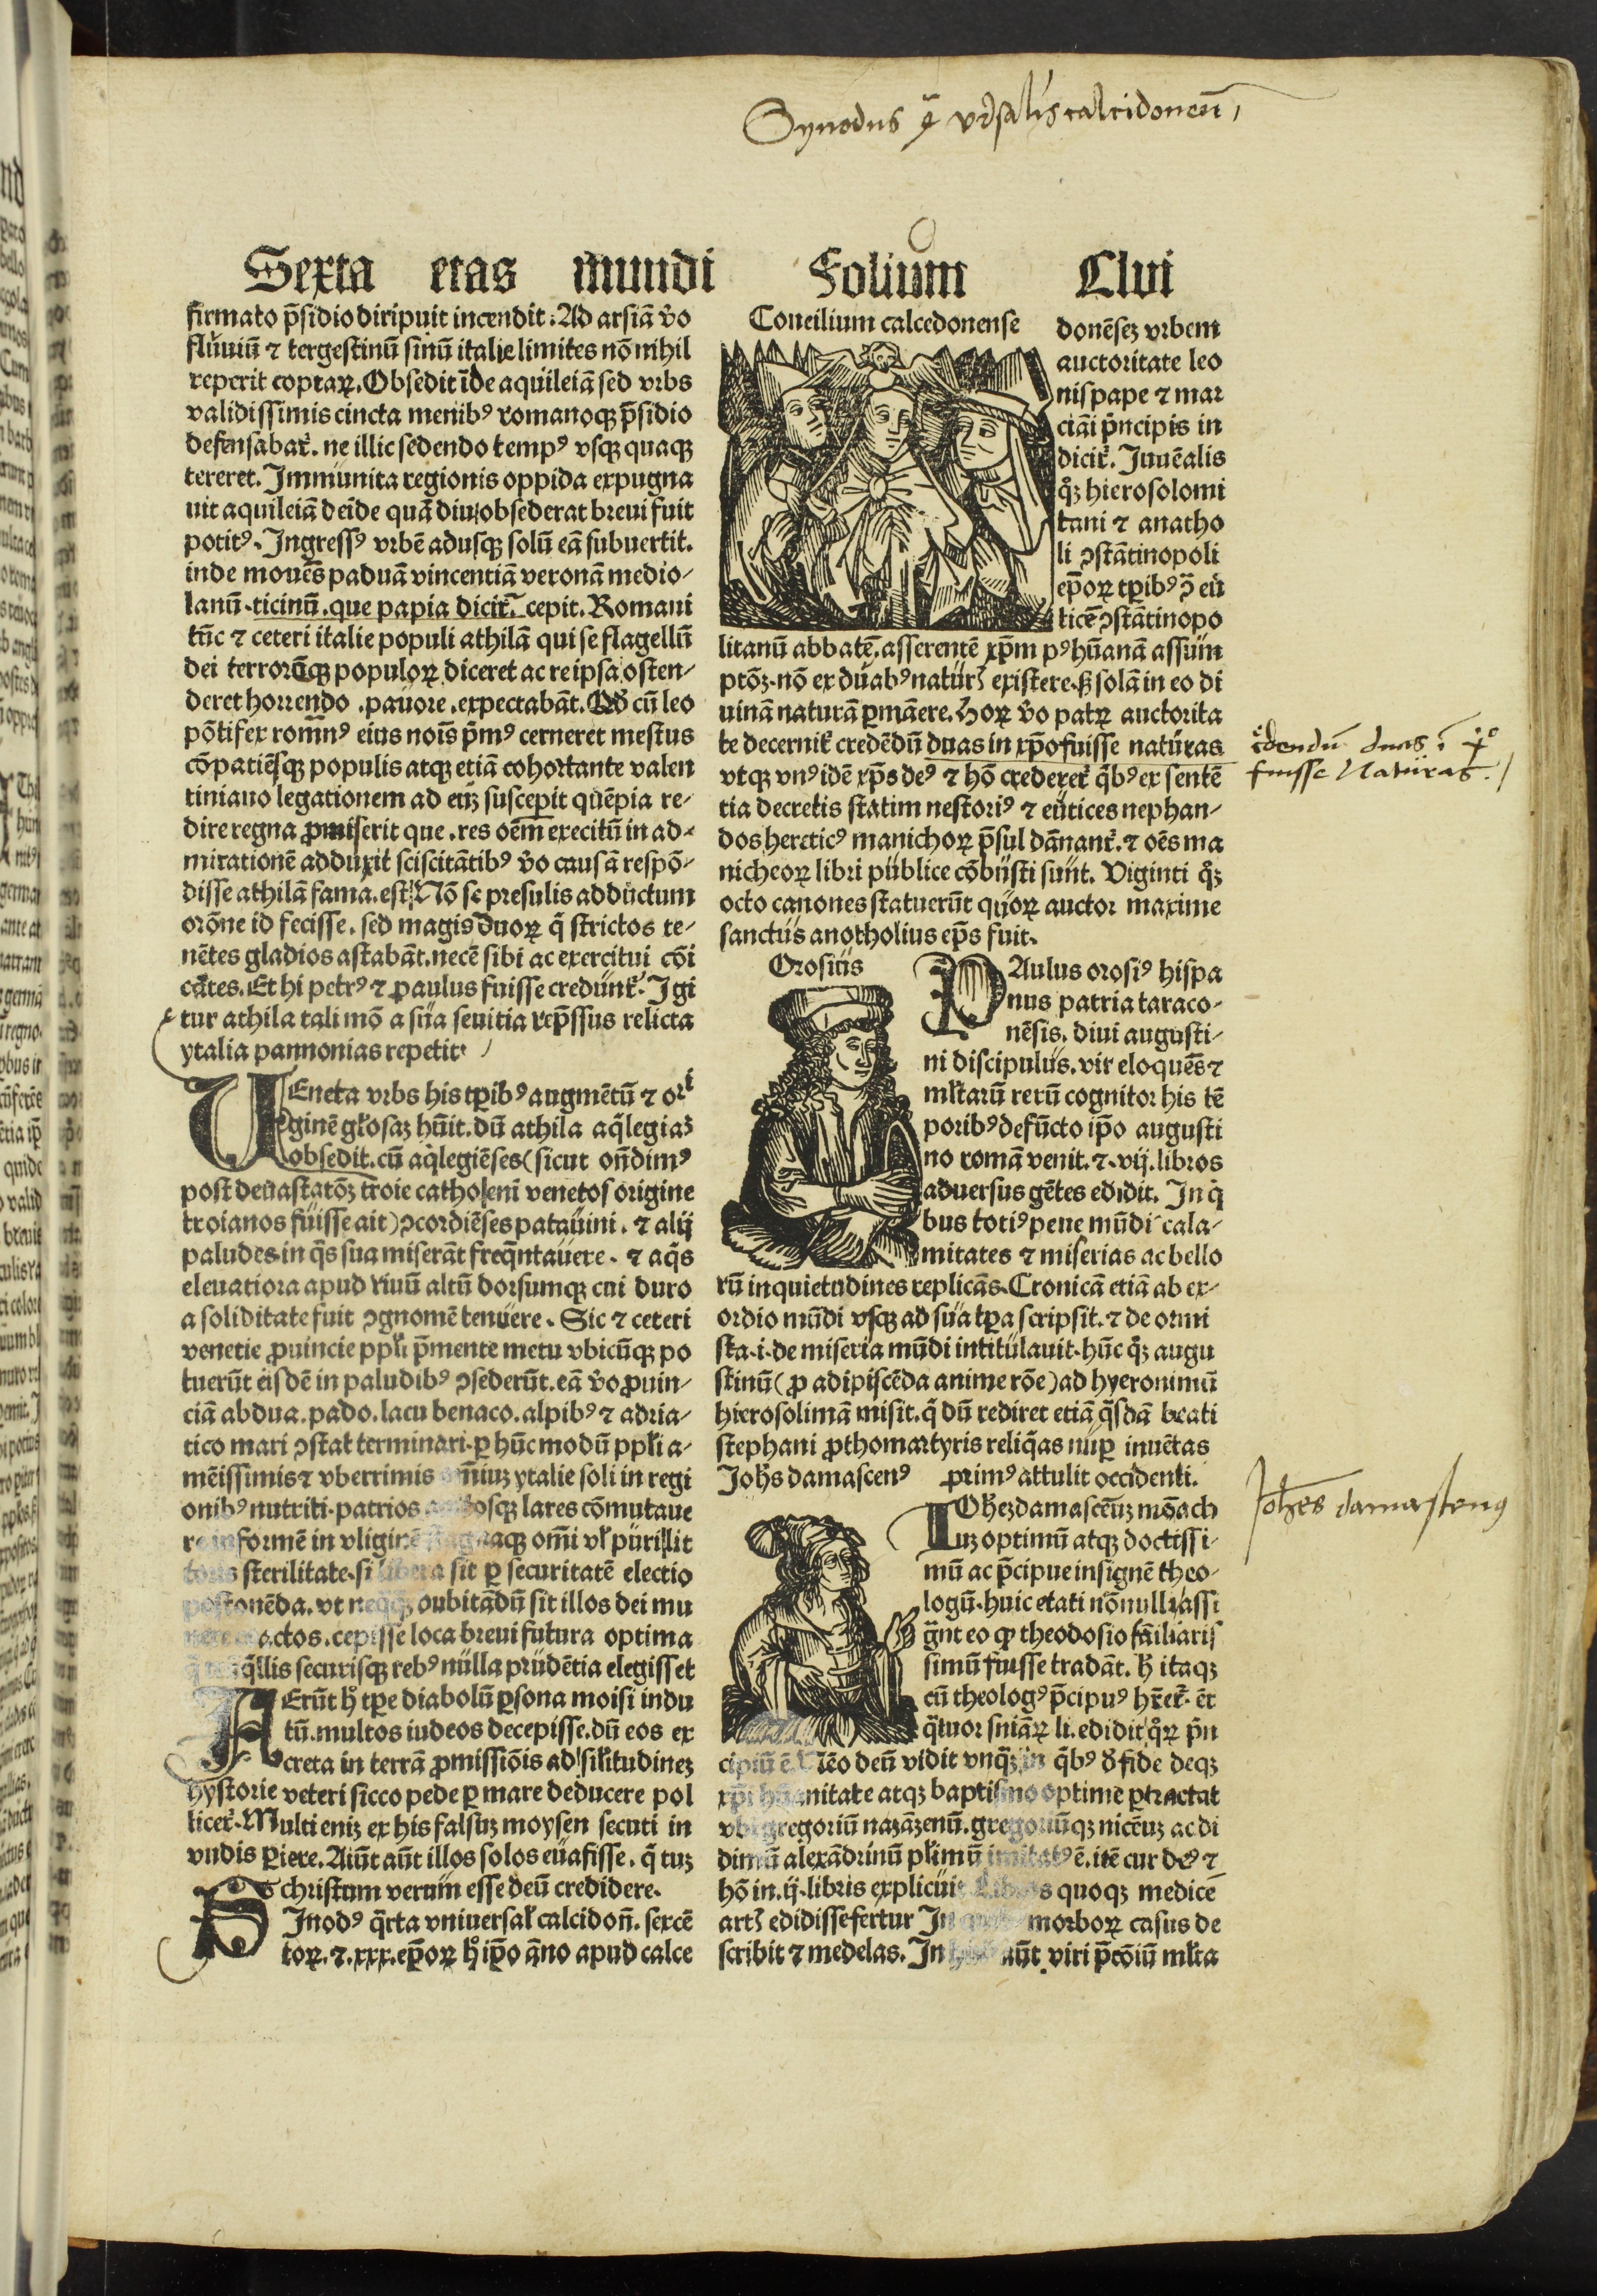 Synodus 4ᵃ vłsalis calcidoneñ
Sexta etas mundi Folium Clvi
firmato p̄sidio diripuit incendit. Ad arsiā v̄o
fluuiū ⁊ tergestinū sinū italie limites nō nihil
reperit coptaꝝ. Obsedit īde aquileiā sed vrbs
validissimis cincta menibꝰ romanoqꝫ p̄sidio
defensabat᷑. ne illic sedendo tempꝰ vsqꝫ quaqꝫ
tereret. Immunita regionis oppida expugna
uit aquileiā deide quā diu obsederat breui fuit
potitꝰ. Ingressꝰ vrbē adusqꝫ solū eā subuertit.
inde mouēs paduā vincentiā veronā medio-
lanū. ticinū. que papia dicit᷑. cepit. Romani
tūc ⁊ ceteri italie populi athilā qui se flagellū
dei terrorūqꝫ populoꝝ diceret ac re ipsa osten-
deret horrendo. pauore. expectabāt. Qd̓ cū leo
pōtifex romnꝰ eius nois p̄mꝰ cerneret mestus
cōpatiēsqꝫ populis atqꝫ etiā cohortante valen
tiniano legationem ad eūꝫ suscepit quēpia re-
dire regna ꝓmiserit que. res oēm execitū in ad-
mirationē adduxit sciscitātibꝰ v̄o causā respō-
disse athilā fama. est. Nō se presulis adductum
orōne id fecisse. sed magis duoꝝ q̄ strictos te-
nētes gladios astabāt. necē sibi ac exercitui cōi
cātes. Et hi petrꝰ ⁊ ꝓaulus fuisse credunt᷑. Igi
tur athila tali mō a sua seuitia rep̄ssus relicta
ytalia pannonias repetit.
VEneta vrbs his tꝑibꝰ augmētū ⁊ ori
ginē głosaꝫ hūit. dū athila aq̄legiaꝫ
obsedit. cū aq̄legiēses (sicut on̄dimꝰ
post deuastatōꝫ troie catho eni venetos origine
troianos fuisse ait) ꝯcordiēses patauini. ⁊ alij
paludes in q̄s sua miserāt freq̄ntauere. ⁊ aq̄s
eleuatiora apud riuū altū dorsumqꝫ cui duro
a soliditate fuit ꝯgnomē tenuere. Sic ⁊ ceteri
venetie ꝓuincie ppłi p̄mente metu vbicūqꝫ po
tuerūt eisdē in paludibꝰ ꝯsederūt. eā v̄o ꝓuin-
ciā abdua. pado. lacu benaco. alpibꝰ ⁊ adria-
tico mari ꝯstat terminari. ꝑ hūc modū ppłi a-
mēissimis ⁊ vberrimis om̄iuꝫ ytalie soli in regi
onibꝰ nutriti. patrios osqꝫ lares cōmutaue
re informē in vliginē aqꝫ om̄i vł pūri lit
toris sterilitate. si libera sit ꝑ securitatē electio
postonēda. vt neqꝫ oubitādū sit illos dei mu
nere actos. cepisse loca breui futura optima
q̄llis securisqꝫ rebꝰ nulla prudētia elegisset
FErūt h̓ tꝑe diabolū ꝑsona moisi indu
tū. multos iudeos decepisse. dū eos ex
creta in terrā ꝓmissiōis ad siłitudineꝫ
hystorie veteri sicco pede ꝑ mare deducere pol
licet᷑. Multi eniꝫ ex his falsuꝫ moysen secuti in
vndis ꝑiere. Aiūt aūt illos solos euasisse. q̄ tuꝫ
christum verum esse deū credidere.
SInodꝰ q̄rta vniuersał calcidon̄. sexcē
toꝝ. ⁊. xxx. ep̄oꝝ h̓ ip̄o āno apud calce
Concilium calcedonense
donēseꝫ vrbem
auctoritate leo
nis pape ⁊ mar
ciāi p̄ncipis in
dicit᷑. Iuuēalis
qꝫ hierosolomi
tani ⁊ anatho
li ꝯstātinopoli
ep̄oꝝ tꝑibꝰ ꝯ̄ eu
ticē ꝯstātinopo
litanū abbatē. asserentē xp̄m pꝰ hūanā assum
ptōꝫ. nō ex duabꝰ natur᷒ existere. sꝫ solā in eo di
uinā naturā ꝑmāere. Hoꝝ v̄o patꝝ auctorita
te decernit᷑ credēdū duas in xp̄o fuisse naturas
vtqꝫ vnꝰ idē xp̄s deꝰ ⁊ hō crederet᷑ q̄bꝰ ex sentē
tia decretis statim nestoriꝰ ⁊ eutices nephan-
dos hereticꝰ manichoꝝ p̄sul dānant᷑. ⁊ oēs ma
nicheoꝝ libri publice cōbusti sunt. Viginti qꝫ
octo canones statuerūt quoꝝ auctor maxime
sanctus anotholius ep̄s fuit.
c̓dendū duas ī xp̄o
fuisse Naturas.
Orosius
PAulus orosiꝰ hispa
nus patria taraco-
nēsis. diui augusti-
ni discipulus. vir eloquēs ⁊
młtarū rerū cognitor his tē
poribꝰ defūcto ip̄o augusti
no romā venit. ⁊. vij. libros
aduersus gētes edidit. In q̄
bus totiꝰ pene mūdi cala-
mitates ⁊ miserias ac bello
rū inquietudines replicās. Cronicā etiā ab ex-
ordio mūdi vsqꝫ ad sua tꝑa scripsit. ⁊ de ormi
sta. i. de miseria mūdi intitulauit. hūc qꝫ augu
stinū (ꝓ adipiscēda anime rōe) ad hyeronimū
hierosolimā misit. q̄ dū rediret etiā q̄sdā beati
stephani ꝓthomartyris reliq̄as nuꝑ inuētas
primꝰ attulit occidenti.
Joh̄s damascenꝰ
Joh̄es damascenꝰ
IOh̄eꝫ damascēuꝫ mōach
uꝫ optimū atqꝫ doctissi-
mū ac p̄cipue insignē theo-
logū. huic etati nōnulli assi
gn̄t eo ꝙ theodosio fāiliaris
simū fuisse tradāt. h̓ itaqꝫ
cū theologꝰ p̄cipuꝰ hr̄et᷑. ēt
q̄tuor sniāꝝ li. edidit q̄ꝝ p̄n
cipiū ē. Nēo deū vidit vnqꝫ in q̄bꝰ d̓ fide deqꝫ
xp̄i hūanitate atqꝫ baptismo optime ꝑtractat
vbi gregoriū nazāzenū. gregoriūqꝫ nicēuꝫ ac di
dimū alexādrinū płimū imitatꝰ ē. itē cur deꝰ ⁊
hō in. ij. libris explicuit. Libros quoqꝫ medicē
art᷒ edidisse fertur In morboꝝ casus de
scribit ⁊ medelas. In aūt viri p̄cōiū młta